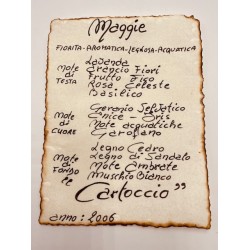 Maggie
FIORITA-AROMATICA-LEGNOSA-ACQUATICA
Lavanda
Note di TESTA
Arancio Fiori
Frutto Fico
Rosa Celeste
Basilico
Geranio Selvatico
Note di CUORE
Anice - Iris
Note acquatiche
Garofano
Legno Cedro
Note di FONDO
Legno di Sandalo
Note Ambrate
Muschio Bianco
Cartoccio"
anno: 2006